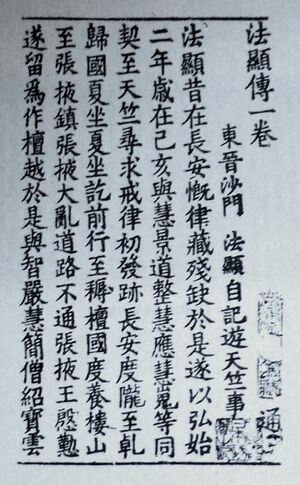 法顯傳一卷 通
東晉沙門 法顯自記遊天竺事
法顯昔在長安慨律藏殘缺於是遂以弘始
二年歲在己亥與慧景道整慧應慧嵬等同
契至天竺尋求戒律初發跡長安度隴至乹
歸國夏坐夏坐訖前行至耨檀國度養樓山
至張掖鎮張掖大亂道路不通張掖王慇懃
遂留為作檀越於是與智嚴慧簡僧紹寶雲